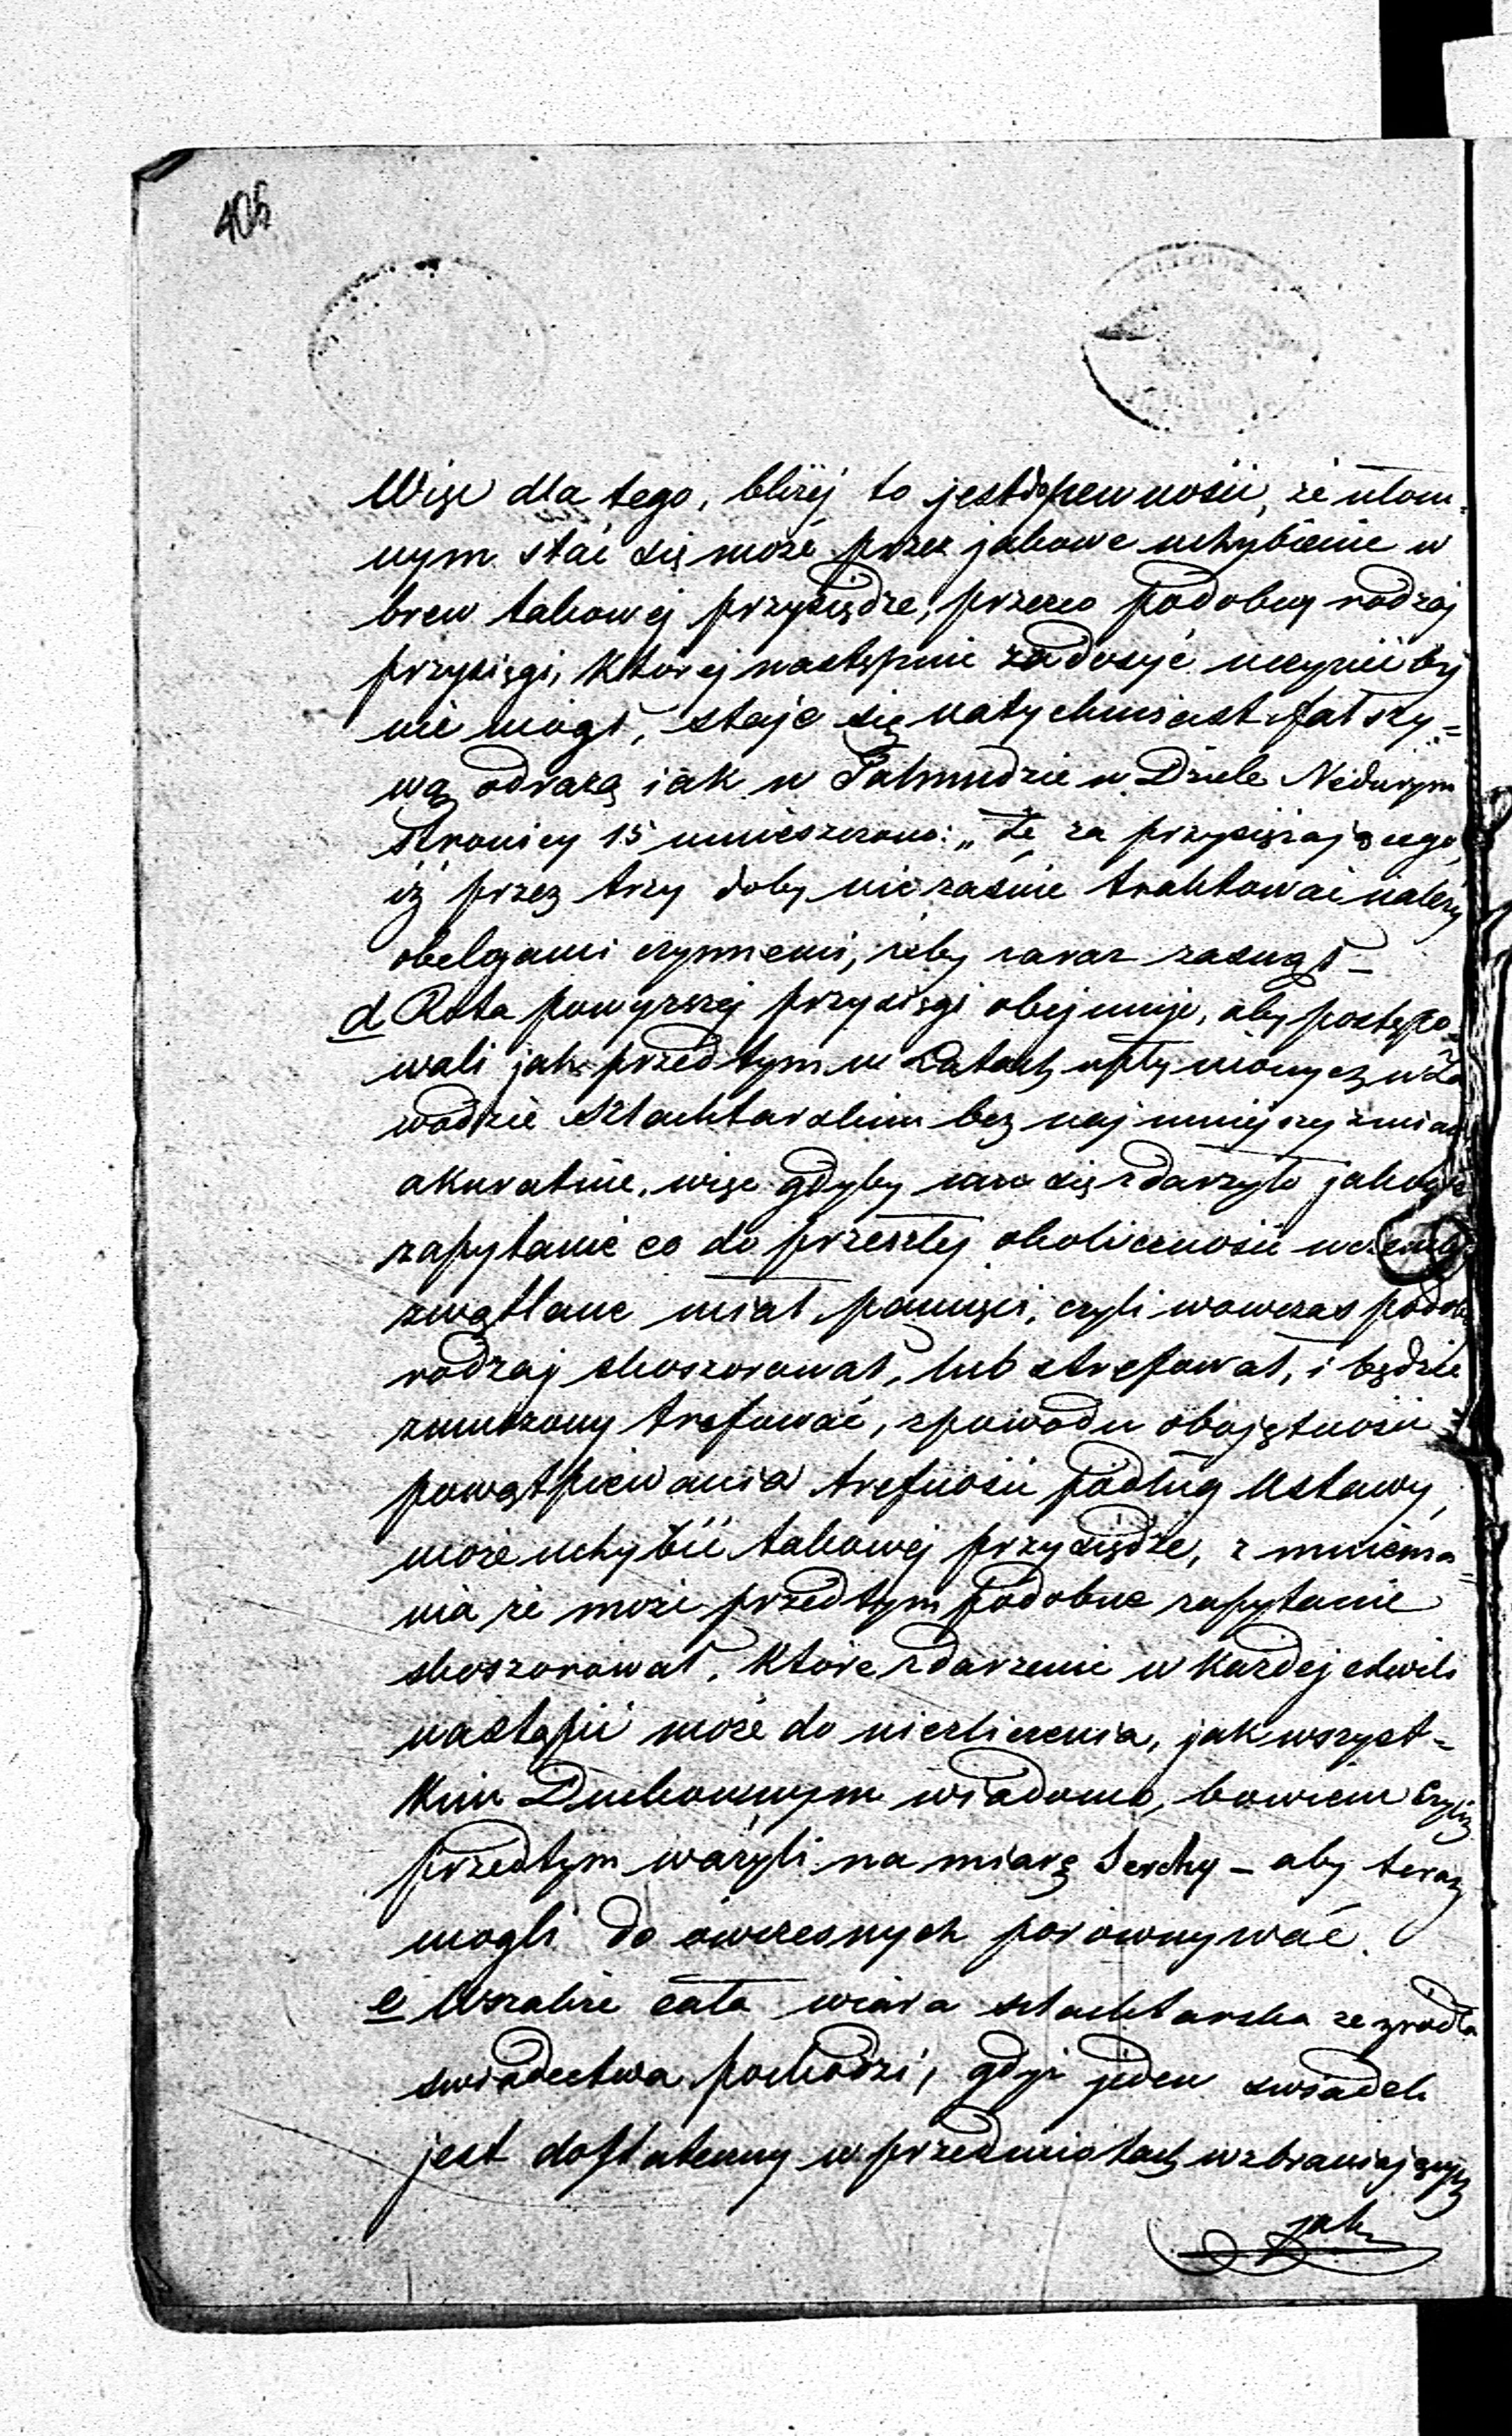 405
Więc dla tego, bliżej to jest do pewności, że ułom-
nym stać się może przez jakowe uchybienie w
brew takowej przysiędze, przezco podobny rodzaj
przysięgi, której następnie zadosyć uczynić by
nie mógł, staje się natychmiast fałszy-
wą odrazą jak w Talmudzie w Dziele Nedurym
stronicy 15 umieszczono: „Że za przysięzającego,
iż przez trzy doby nie zaśnie traktować należy
obelgami czynnemi, żeby zaraz zasnął –
d Rota powyższej przysięgi obejmuje, aby postępo-
wali jak przedtym w Latach upłynionych w Za
wodzie Szlachtarskim bez najmniejszej zmian
akuratnie, więc gdyby mu się zdarzyło jakowe
zapytanie co do przeszłej okoliczności
zwątlane miał pamięci, czyli wowczas podob
rodzaj skoszerował, lub strefował, i będzie
zmuszony trefować, z powodu obojętności
powątpiewania trefności podług Ustawy,
może uchybić takowej przysiędze, z mniema-
nia że może przedtym podobne zapytanie
skoszerował, które zdarzenie w każdej chwili
nastąpić może do niezliczenia, jak wszyst-
kim Duchownym wiadomo, bowiem czyliż
przedtym ważyli na miarę Serchy – aby teraz
mogli do ówczesnych porównywać.
e Wszakże cała wiara szlachtarska ze zrodła
swiadectwa pochodzi, gdyż jeden swiadek
jest dostateczny w przedmiotach wzbraniających
jak